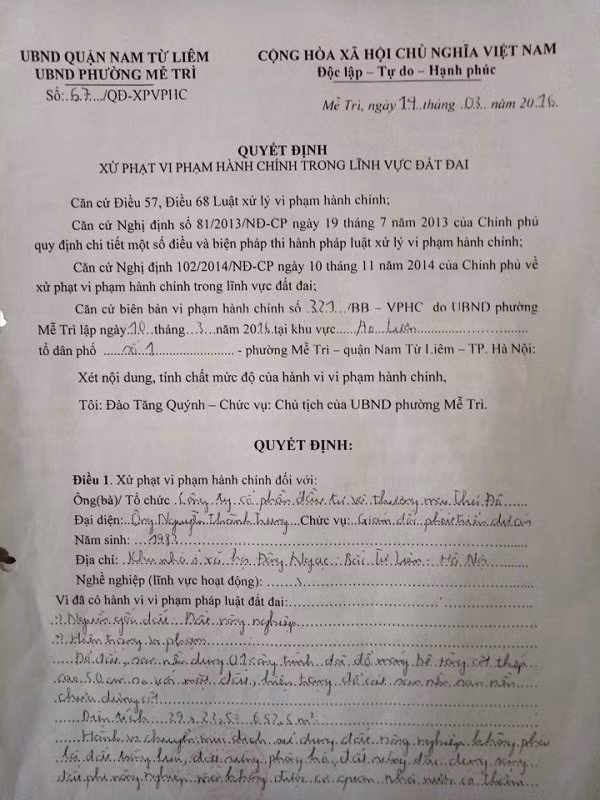 UBND QUẬN NAM TỪ LIÊM
UBND PHƯỜNG MỄ TRÌ
Số:.67.../QĐ-XPVPHC
CỘNG HÒA XÃ HỘI CHỦ NGHĨA VIỆT NAM
Độc lập – Tự do – Hạnh phúc
Mễ Trì, ngày 14..tháng..03..năm 2016.
QUYẾT ĐỊNH
XỬ PHẠT VI PHẠM HÀNH CHÍNH TRONG LĨNH VỰC ĐẤT ĐAI
Căn cứ Điều 57, Điều 68 Luật xử lý vi phạm hành chính;
Căn cứ Nghị định số 81/2013/NĐ-CP ngày 19 tháng 7 năm 2013 của Chính phủ
quy định chi tiết một số điều và biện pháp thi hành pháp luật xử lý vi phạm hành chính;
Căn cứ Nghị định 102/2014/NĐ-CP ngày 10 tháng 11 năm 2014 của Chính phủ về
xử phạt vi phạm hành chính trong lĩnh vực đất đai;
Căn cứ biên bản vi phạm hành chính số 321../BB – VPHC do UBND phường
Mễ Trì lập ngày 10..tháng..3..năm 2016 tại khu vực.....Ao.....
tổ dân phố .....số 1..................- phường Mễ Trì – quận Nam Từ Liêm – TP. Hà Nội:
Xét nội dung, tính chất mức độ của hành vi vi phạm hành chính,
Tôi: Đào Tăng Quýnh – Chức vụ: Chủ tịch của UBND phường Mễ Trì.
QUYẾT ĐỊNH:
Điều 1. Xử phạt vi phạm hành chính đối với:
Ông(bà)/ Tổ chức .Công ty cổ phần đầu tư và thương mại Thủ Đô......
Đại diện:..Ông Nguyễn Thành Trung...Chức vụ:.Giám đốc phát triển dự án
Năm sinh: ...1983...
Địa chỉ: ..Khu nhà ở xã hội Đông Ngạc - Bắc Từ Liêm - Hà Nội
Nghề nghiệp (lĩnh vực hoạt động): ...
Vì đã có hành vi vi phạm pháp luật đất đai:...
Nguồn gốc đất: Đất nông nghiệp
Hiện trạng vi phạm
Đổ đất, san nền dựng 01 công trình, đã đổ móng bê tông cốt thép
cao 50cm so với mặt đất, hiện trạng đổ cát san nền
chưa dựng cột
Diện tích 29 x 22,5 = 652,5 m²
Hành vi chuyển mục đích sử dụng đất nông nghiệp không phải
là đất trồng lúa, đất rừng phòng hộ, đất rừng đặc dụng sang
đất phi nông nghiệp mà không được cơ quan nhà nước có thẩm